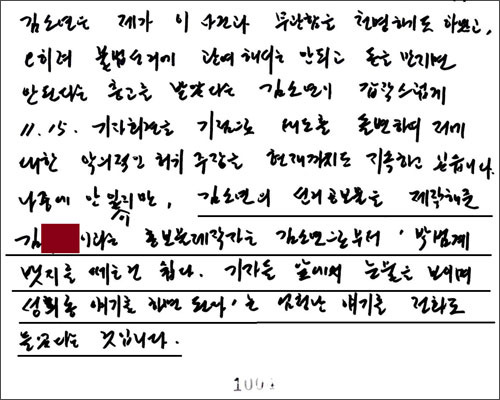 김소연은 제가 이 사건과 무관함을 천명하기도 하였고,
오히려 불법선거에 관여해서는 안되고 돈을 만지면
안된다는 충고를 받았다는 김소연이 갑작스럽게
11. 15. 기자회견을 기점으로 태도를 돌변하여 저에
대한 악의적인 허위 주장을 현재까지도 지속하고 있습니다.
나중에 안 일이지만, 김소연의 선거공보물을 제작해준
김 이라는 홍보물제작자는 김소연으로부터 '박범계
뱃지를 떼는건 쉽다. 기자들 앞에서 눈물을 보이며
성희롱 얘기를 하면 된다'는 엄청난 얘기를 전화로
들었다는 것입니다.